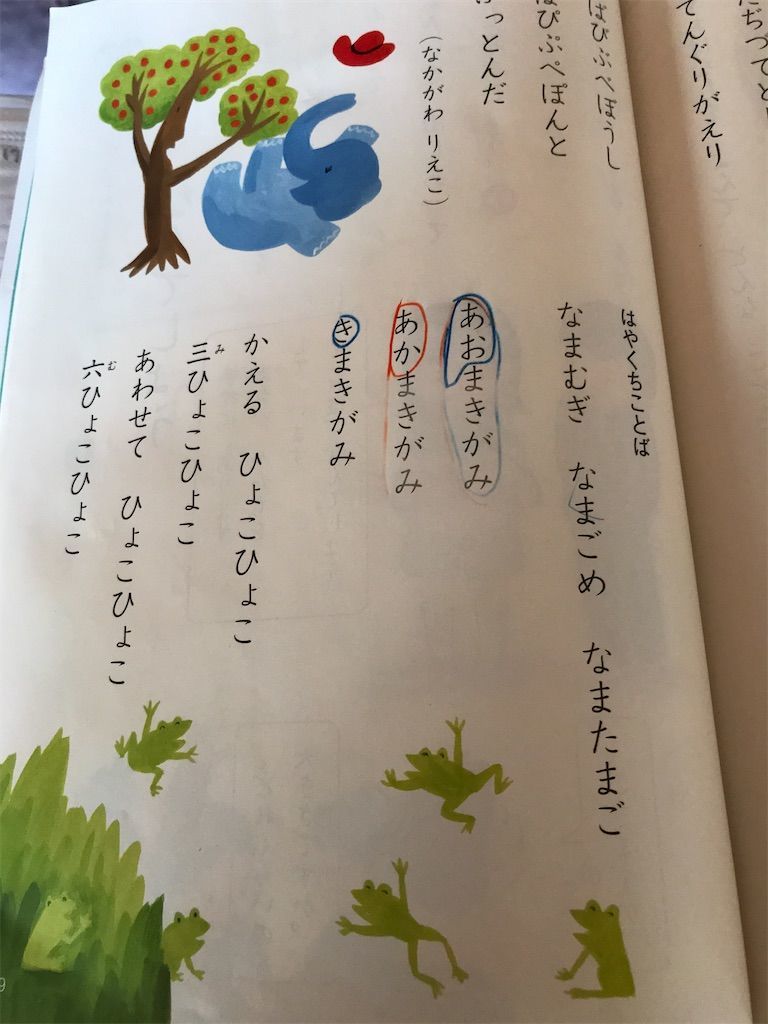 でんぐりがえり
ばびぶべぼうし
ぱぴぷぺぽんと
っとんだ
(なかがわ りえこ)
はやくちことば
なまむぎ なまごめ なまたまご
あおまきがみ
あかまきがみ
きまきがみ
かえる ひょこひょこ
三(み)ひょこひょこ
あわせて ひょこひょこ
六(む)ひょこひょこ